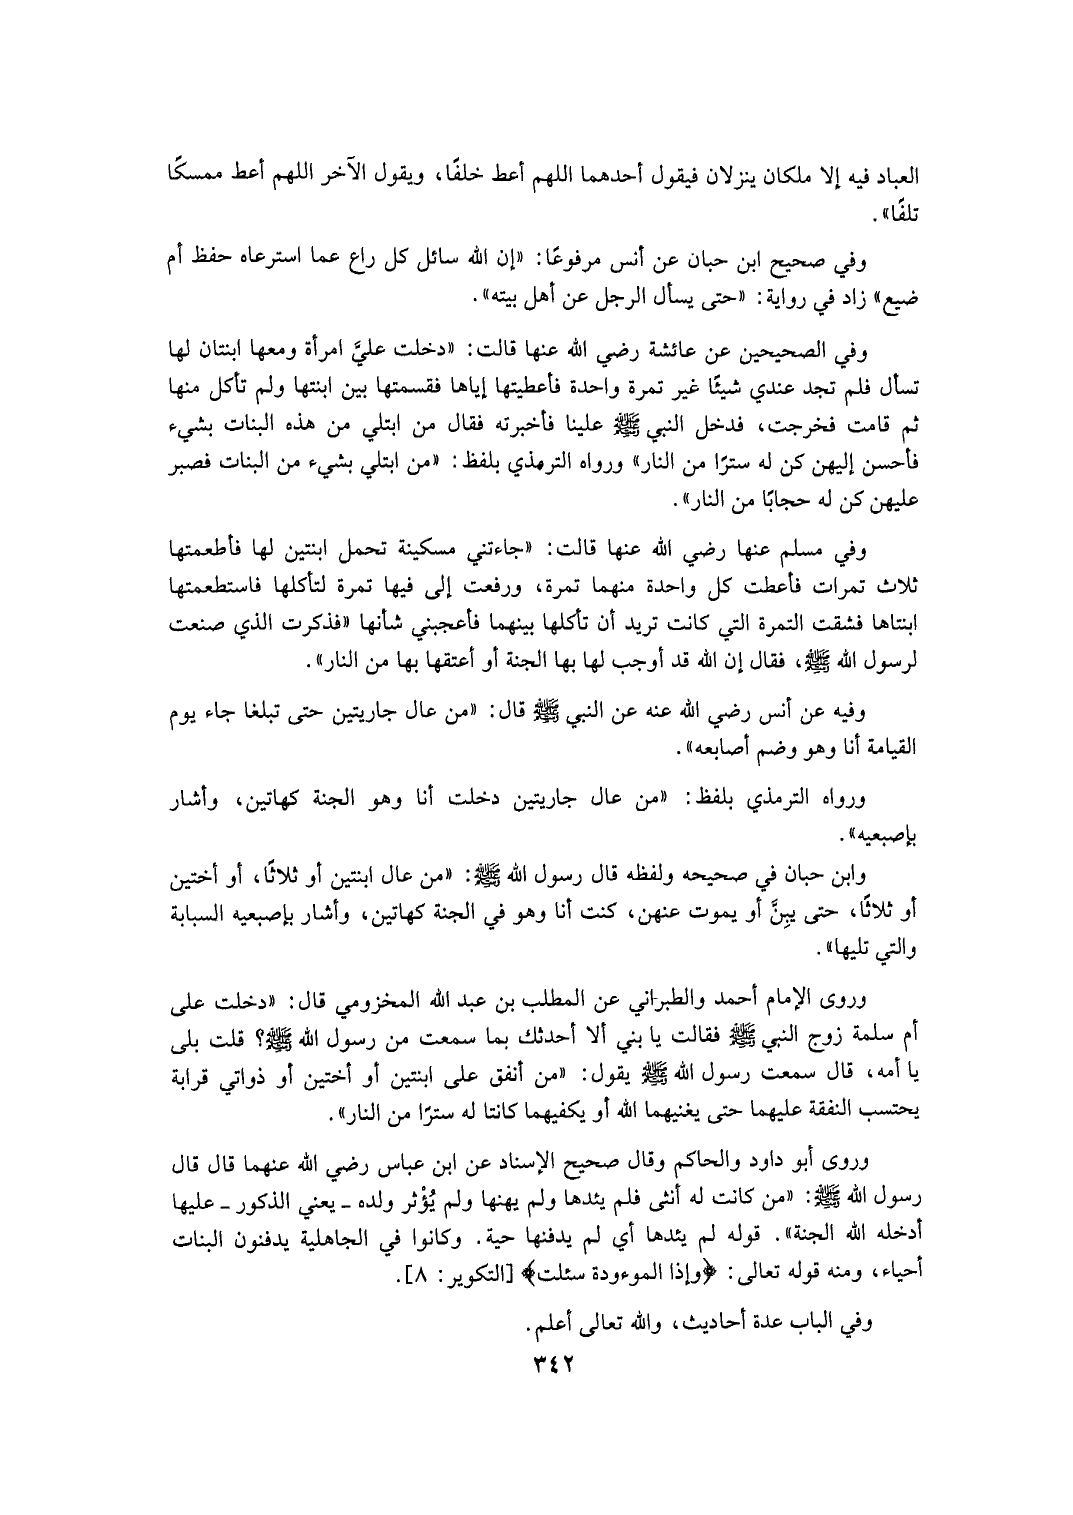 العباد فيه إلا ملكان ينزلان فيقول أحدهما اللهم أعط خلفًا، ويقول الآخر اللهم أعط ممسكًا
تلفًا».
وفي صحيح ابن حبان عن أنس مرفوعًا: «إن الله سائل كل راع عما استرعاه حفظ أم
ضيع» زاد في رواية: «حتى يسأل الرجل عن أهل بيته».
وفي الصحيحين عن عائشة رضي الله عنها قالت: «دخلت عليَّ امرأة ومعها ابنتان لها
تسأل فلم تجد عندي شيئًا غير تمرة واحدة فأعطيتها إياها فقسمتها بين ابنتها ولم تأكل منها
ثم قامت فخرجت، فدخل النبي ﷺ علينا فأخبرته فقال من ابتلي من هذه البنات بشيء
فأحسن إليهن كن له سترًا من النار» ورواه الترمذي بلفظ: «من ابتلي بشيء من البنات فصبر
عليهن كن له حجابًا من النار».
وفي مسلم عنها رضي الله عنها قالت: «جاءتني مسكينة تحمل ابنتين لها فأطعمتها
ثلاث تمرات فأعطت كل واحدة منهما تمرة، ورفعت إلى فيها تمرة لتأكلها فاستطعمتها
ابنتاها فشقت التمرة التي كانت تريد أن تأكلها بينهما فأعجبني شأنها «فذكرت الذي صنعت
لرسول الله ﷺ، فقال إن الله قد أوجب لها بها الجنة أو أعتقها بها من النار».
وفيه عن أنس رضي الله عنه عن النبي ﷺ قال: «من عال جاريتين حتى تبلغا جاء يوم
القيامة أنا وهو وضم أصابعه».
ورواه الترمذي بلفظ: «من عال جاريتين دخلت أنا وهو الجنة كهاتين، وأشار
بإصبعيه».
وابن حبان في صحيحه ولفظه قال رسول الله ﷺ: «من عال ابنتين أو ثلاثًا، أو أختين
أو ثلاثًا، حتى يبِنَّ أو يموت عنهن، كنت أنا وهو في الجنة كهاتين، وأشار بإصبعيه السبابة
والتي تليها».
وروى الإمام أحمد والطبراني عن المطلب بن عبد الله المخزومي قال: «دخلت على
أم سلمة زوج النبي ﷺ فقالت يا بني ألا أحدثك بما سمعت من رسول الله ﷺ؟ قلت بلى
يا أمه، قال سمعت رسول الله ﷺ يقول: «من أنفق على ابنتين أو أختين أو ذواتي قرابة
يحتسب النفقة عليهما حتى يغنيهما الله أو يكفيهما كانتا له سترًا من النار».
وروى أبو داود والحاكم وقال صحيح الإسناد عن ابن عباس رضي الله عنهما قال قال
رسول الله ﷺ: «من كانت له أنثى فلم يئدها ولم يهنها ولم يُؤْثر ولده ـ يعني الذكور ـ عليها
أدخله الله الجنة». قوله لم يئدها أي لم يدفنها حية. وكانوا في الجاهلية يدفنون البنات
أحياء، ومنه قوله تعالى: ﴿وإذا الموءودة سئلت﴾ [التكوير: ٨].
وفي الباب عدة أحاديث، والله تعالى أعلم.
٣٤٢